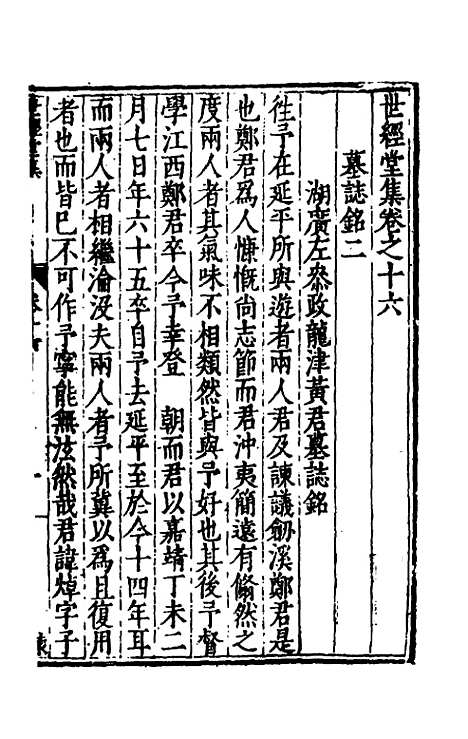 世經堂集卷之十六
墓誌銘二
湖廣左叅政龍津黃君墓誌銘
徃予在延平所與遊者兩人君及諫議劒溪鄭君是
也鄭君爲人慷慨尚志節而君沖夷簡遠有翛然之
度兩人者其氣味不相類然皆與予好也其後予督
學江西鄭君卒今予幸登　朝而君以嘉靖丁未二
月七日年六十五卒自予去延平至於今十四年耳
而兩人者相繼淪没夫兩人者予所冀以爲且復用
者也而皆巳不可作予寧能無泫然哉君諱焯字子